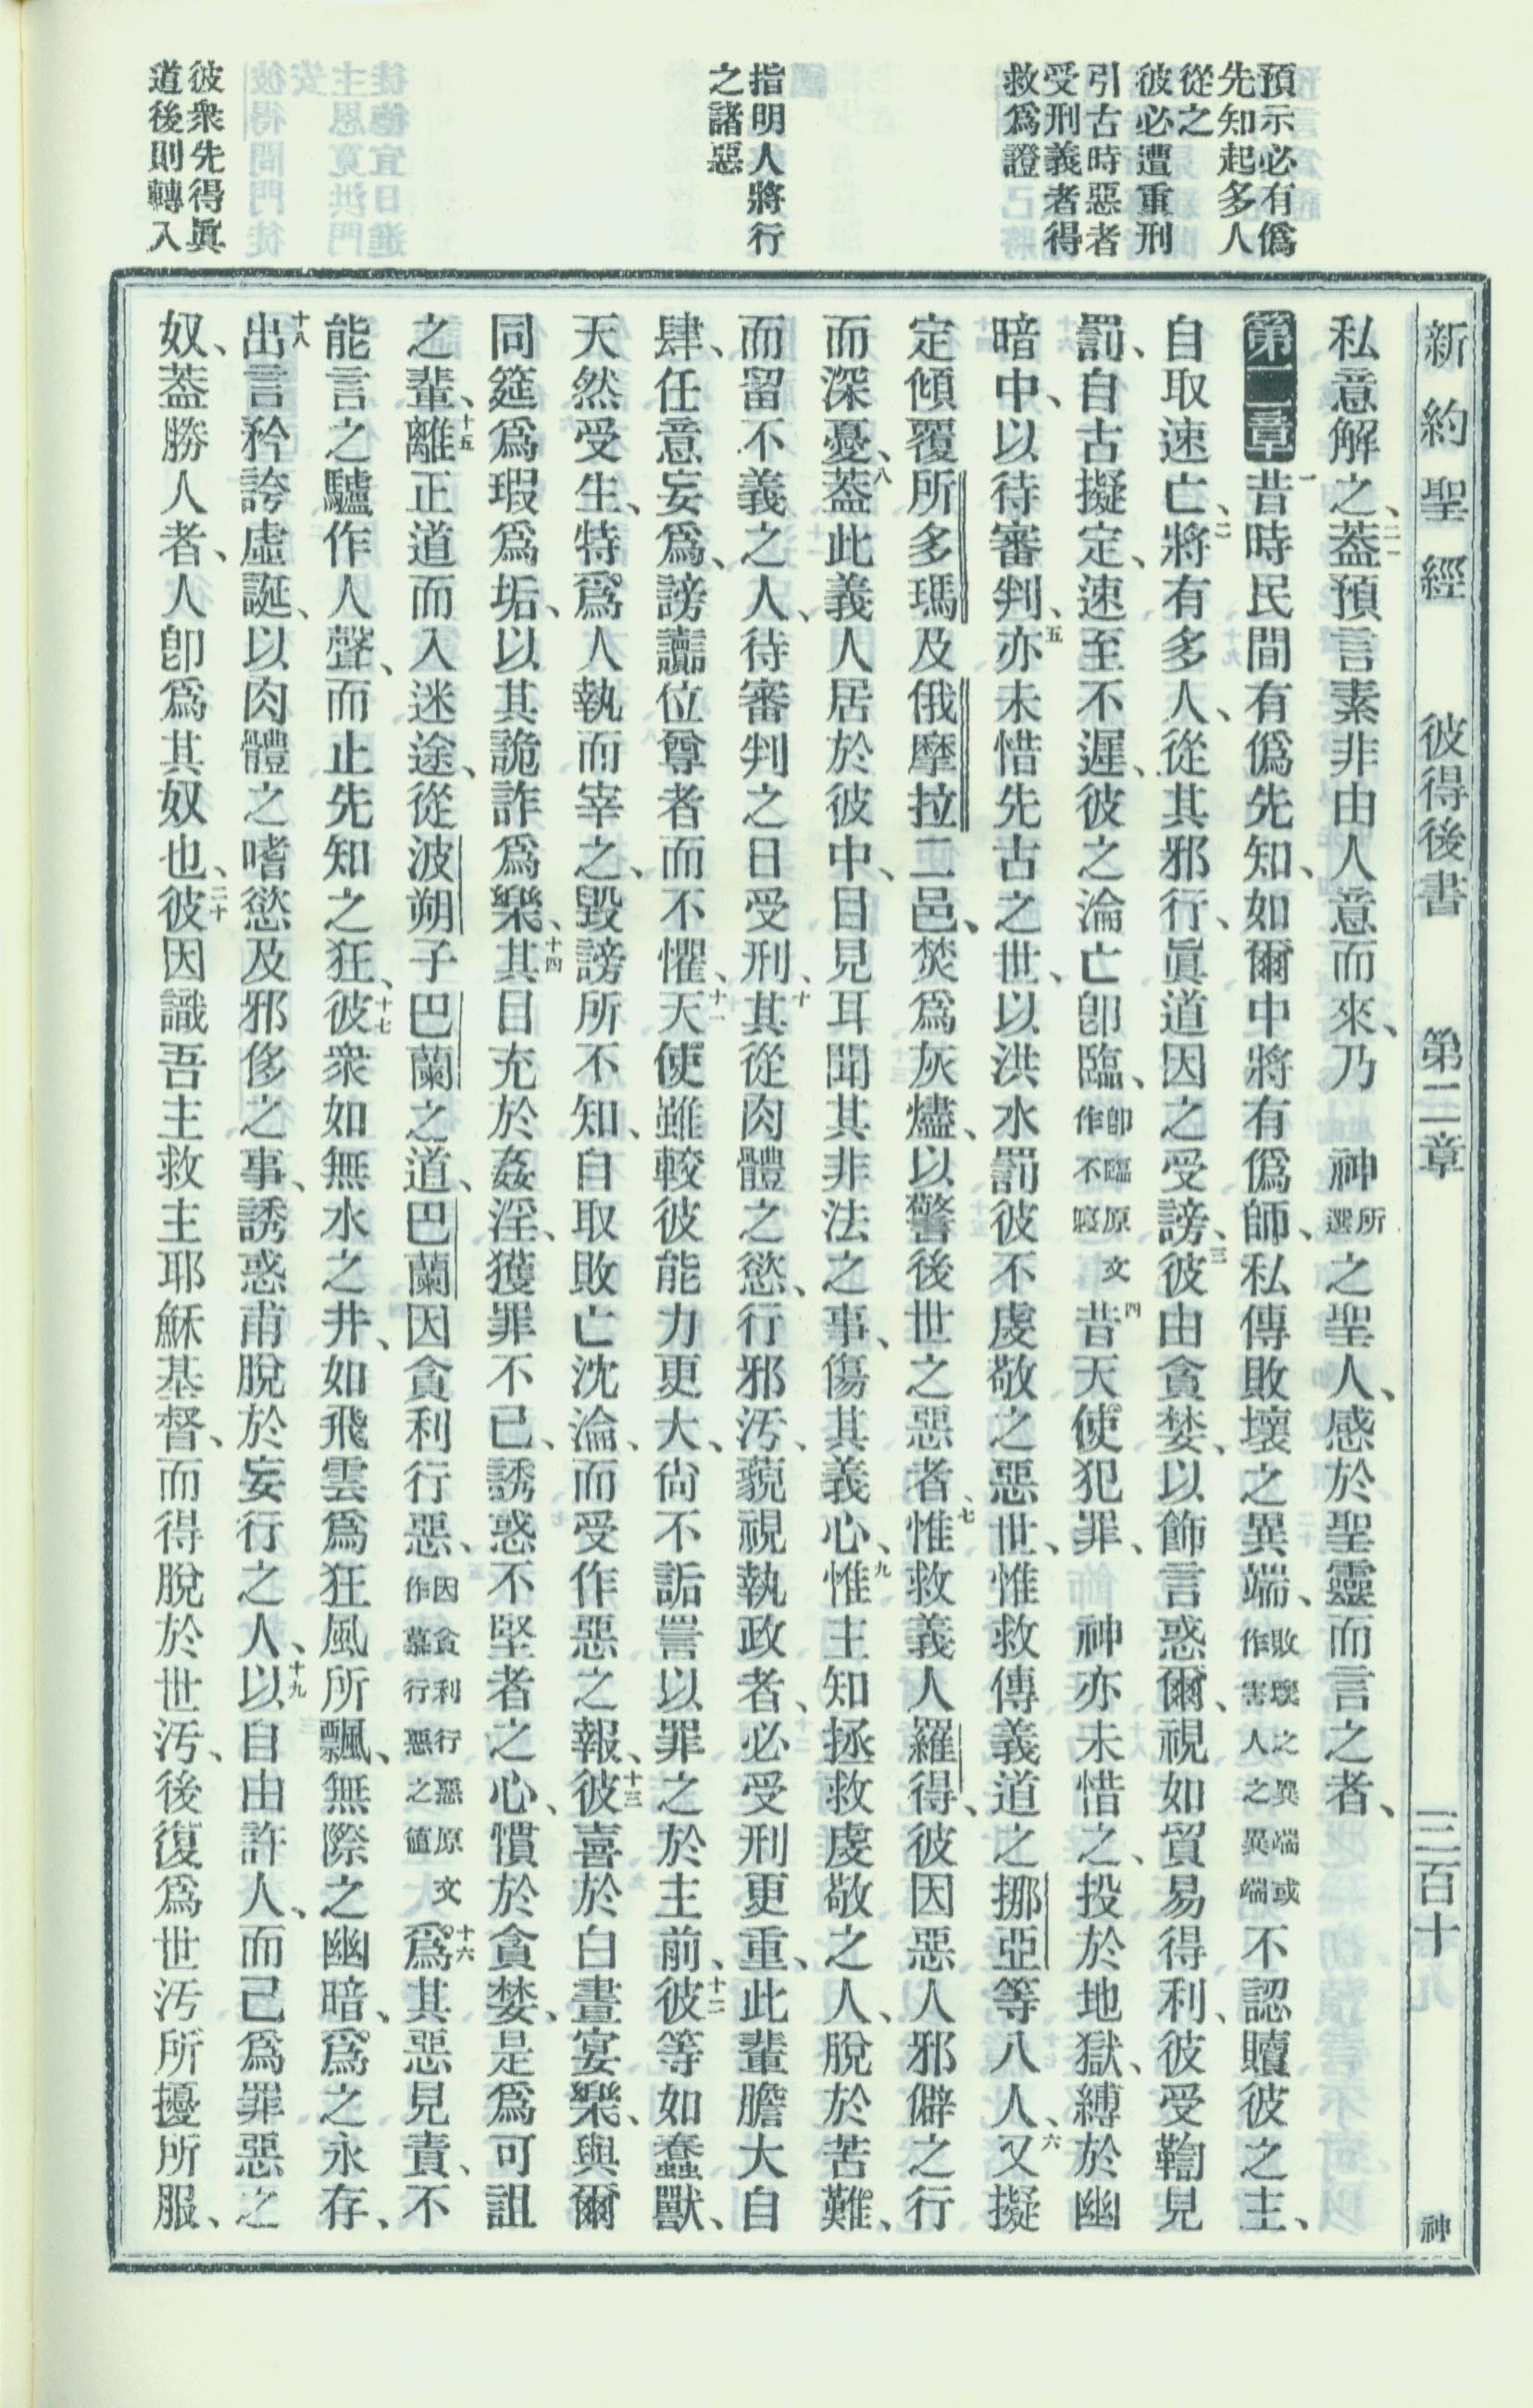 預示必有僞
先知起多人
從之
彼必遭重刑
引古時惡者
受刑義者得
救爲證
指明人將行
之諸惡
彼衆先得眞
道後則轉入
新約聖經 彼得後書 第二章 三百十 神
私意解之、二一蓋預言素非由人意而來、乃 神所選之聖人、感於聖靈而言之者、
第二章一昔時民間有僞先知、如爾中將有僞師、私傳敗壞之異端、敗壞之異端或作害人之異端不認贖彼之主、
自取速亡、二將有多人、從其邪行、眞道因之受謗、三彼由貪婪、以飾言惑爾、視如貿易得利、彼受鞫見
罰、自古擬定、速至不遲、彼之淪亡卽臨、卽臨原文作不寢四昔天使犯罪、 神亦未惜之、投於地獄、縛於幽
暗中、以待審判、五亦未惜先古之世、以洪水罰彼不虔敬之惡世、惟救傳義道之挪亞等八人、六又擬
定傾覆所多瑪及俄摩拉二邑、焚爲灰燼、以警後世之惡者、七惟救義人羅得、彼因惡人邪僻之行
而深憂、八蓋此義人居於彼中、目見耳聞其非法之事、傷其義心、九惟主知拯救虔敬之人、脫於苦難、
而留不義之人、待審判之日受刑、十其從肉體之慾、行邪汚、藐視執政者、必受刑更重、此輩膽大自
肆、任意妄爲、謗讟位尊者而不懼、十一天使雖較彼能力更大、尙不詬詈以罪之於主前、十二彼等如蠢獸、
天然受生、特爲人執而宰之、毀謗所不知、自取敗亡沈淪、而受作惡之報、十三彼喜於白晝宴樂、與爾
同筵爲瑕爲垢、以其詭詐爲樂、十四其目充於姦淫、獲罪不已、誘惑不堅者之心、慣於貪婪、是爲可詛
之輩、十五離正道而入迷途、從波朔子巴蘭之道、巴蘭因貪利行惡、因貪利行惡原文作慕行惡之値十六爲其惡見責、不
能言之驢作人聲、而止先知之狂、十七彼衆如無水之井、如飛雲爲狂風所飄、無際之幽暗、爲之永存、
十八出言矜誇虛誕、以肉體之嗜慾及邪侈之事、誘惑甫脫於妄行之人、十九以自由許人、而己爲罪惡之
奴、蓋勝人者、人卽爲其奴也、二十彼因識吾主救主耶穌基督、而得脫於世汚、後復爲世汚所擾所服、